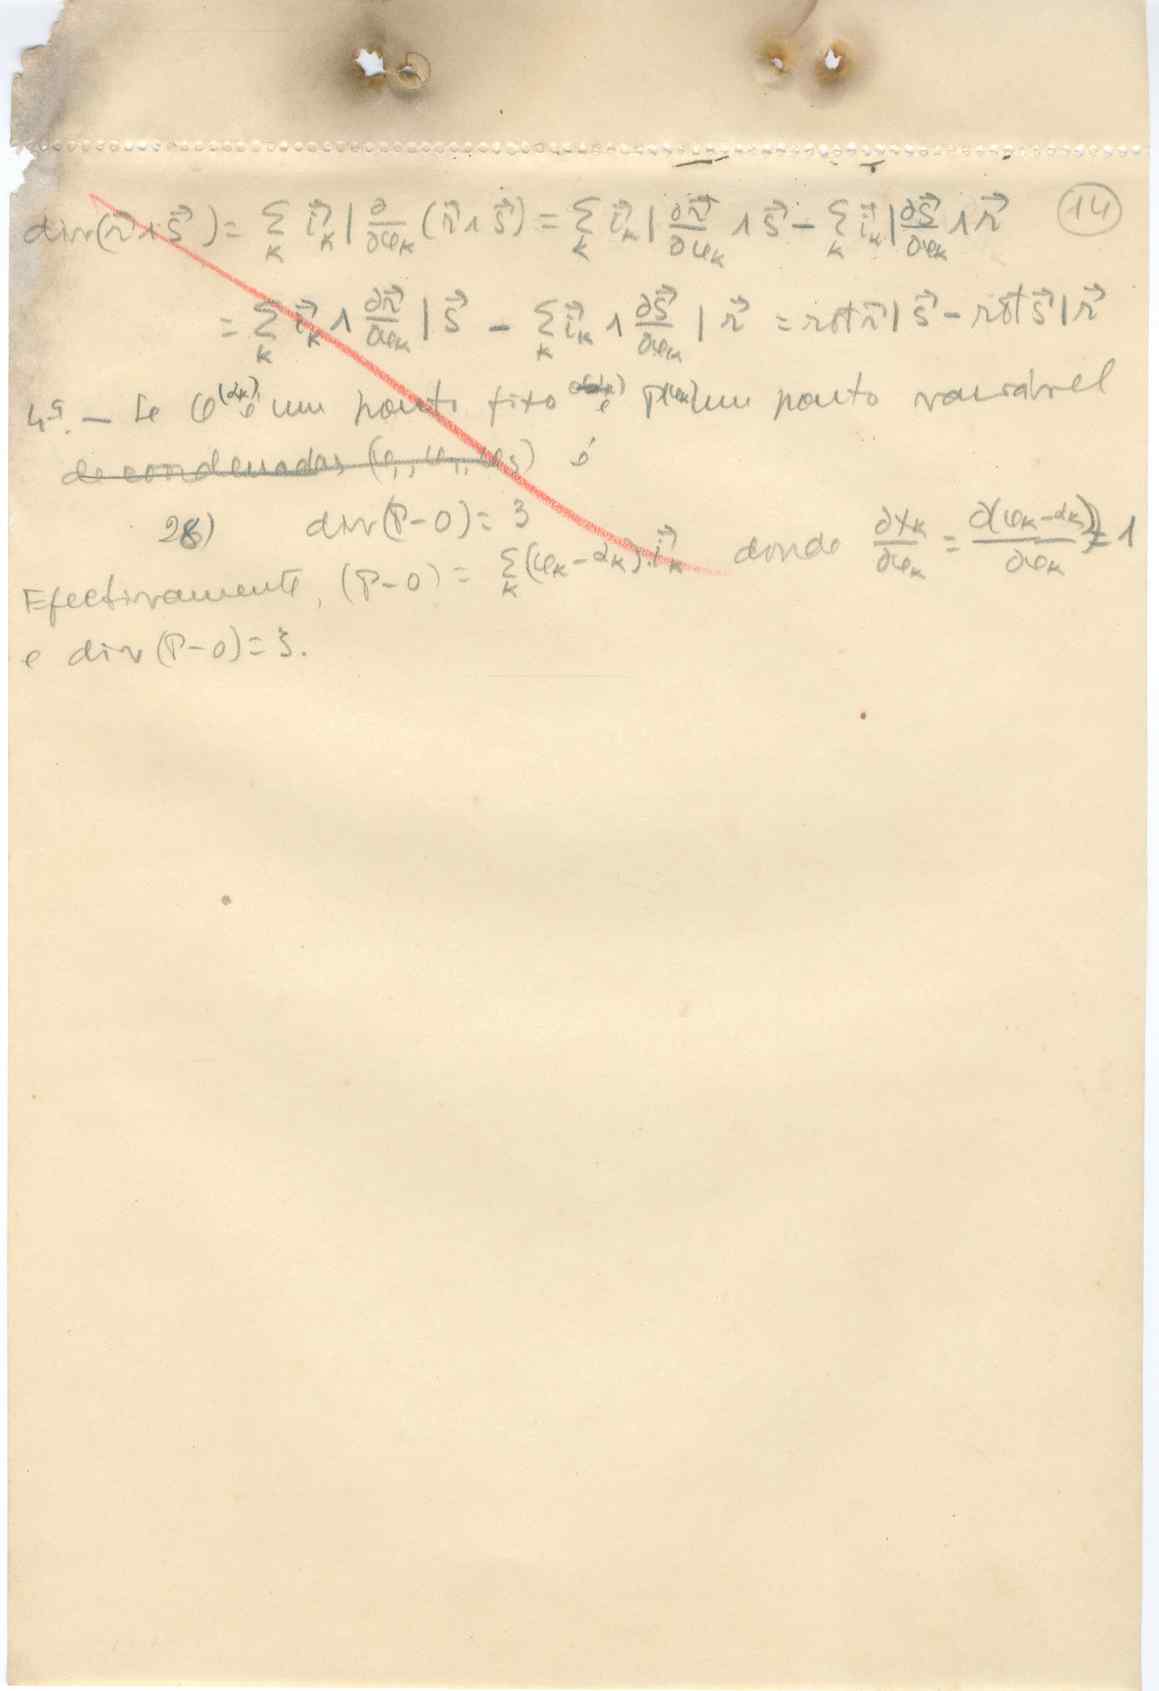 14
div(r⃗ ∧ s⃗) = Σ_k i⃗_k | ∂/∂φ_k (r⃗ ∧ s⃗) = Σ_k i⃗_k | ∂r⃗/∂φ_k ∧ s⃗ − Σ_k i⃗_k | ∂s⃗/∂φ_k ∧ r⃗
= Σ_k i⃗_k ∧ ∂r⃗/∂φ_k | s⃗ − Σ_k i⃗_k ∧ ∂s⃗/∂φ_k | r⃗ = rot r⃗ | s⃗ − rot s⃗ | r⃗
4ª. — Se O(α_k) é um ponto fixo e P(φ_k) um ponto variável
de coordenadas (φ₁, φ₂, φ₃) é
28) div(P−O) = 3
Efectivamente, (P−O) = Σ_k (φ_k − α_k) . i⃗_k donde ∂x_k/∂φ_k = ∂(φ_k − α_k)/∂φ_k = 1
e div(P−O) = 3.